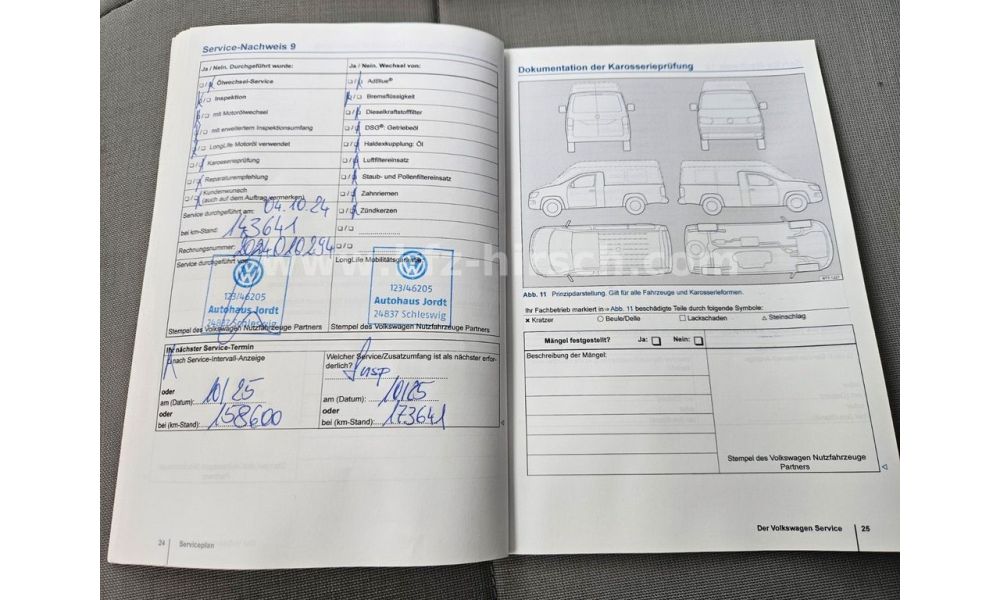 Service-Nachweis 9
Ja / Nein. Durchgeführt wurde:
Ölwechsel-Service
Inspektion
mit Motorölwechsel
mit erweitertem Inspektionsumfang
LongLife Motoröl verwendet
Karosserieprüfung
Reparaturempfehlung
Kundenwunsch
(auch auf dem Auftrag vermerken)
Service durchgeführt am: 04.10.24
bei km-Stand: 143641
Rechnungsnummer:
Service durchgeführt von:
123/46205
Autohaus Jordt
24837 Schleswig
Stempel des Volkswagen Nutzfahrzeuge Partners
Ja / Nein. Wechsel von:
AdBlue®
Bremsflüssigkeit
Dieselkraftstofffilter
DSG®: Getriebeöl
Haldexkupplung: Öl
Luftfiltereinsatz
Staub- und Pollenfiltereinsatz
Zahnriemen
Zündkerzen
LongLife Mobilitätsgarantie
123/46205
Autohaus Jordt
24837 Schleswig
Stempel des Volkswagen Nutzfahrzeuge Partners
Ihr nächster Service-Termin
nach Service-Intervall-Anzeige
oder
am (Datum): 10/25
oder
bei (km-Stand): 158600
Welcher Service/Zusatzumfang ist als nächster erfor-
derlich? Insp
am (Datum): 10/25
oder
bei (km-Stand): 173641
24 Serviceplan
www.kfz-hirsch.com
Dokumentation der Karosserieprüfung
Abb. 11 Prinzipdarstellung. Gilt für alle Fahrzeuge und Karosserieformen.
Ihr Fachbetrieb markiert in ⇒ Abb. 11 beschädigte Teile durch folgende Symbole:
× Kratzer ○ Beule/Delle □ Lackschaden △ Steinschlag
Mängel festgestellt? Ja: □ Nein: □
Beschreibung der Mängel:
Stempel des Volkswagen Nutzfahrzeuge
Partners
Der Volkswagen Service 25